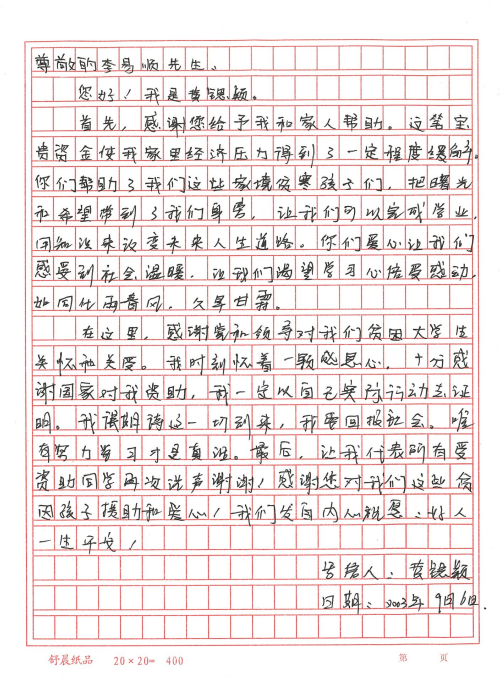 尊敬的李易顺先生、
您好！我是黄锶颖。
首先，感谢您给予我和家人帮助。这笔宝
贵资金使我家里经济压力得到了一定程度缓和。
你们帮助了我们这些家境贫寒孩子们，把曙光
和希望带到了我们身旁，让我们可以完成学业，
用知识来改变未来人生道路。你们爱心让我们
感受到社会温暖，让我们渴望学习心倍受感动，
如同化雨春风，久旱甘霖。
在这里，感谢党和领导对我们贫困大学生
关怀和关爱。我时刻怀着一颗感恩心，十分感
谢国家对我资助，我一定以自己实际行动去证
明。我很期待这一切到来，我要回报社会。唯
有努力学习才是真谛。最后，让我代表所有受
资助同学再次说声谢谢！感谢您对我们这些贫
困孩子援助和爱心！我们发自内心祝愿：好人
一生平安！
写信人：黄锶颖
日期：2023年9月6日.
舒晨纸品 20×20=400 第 页